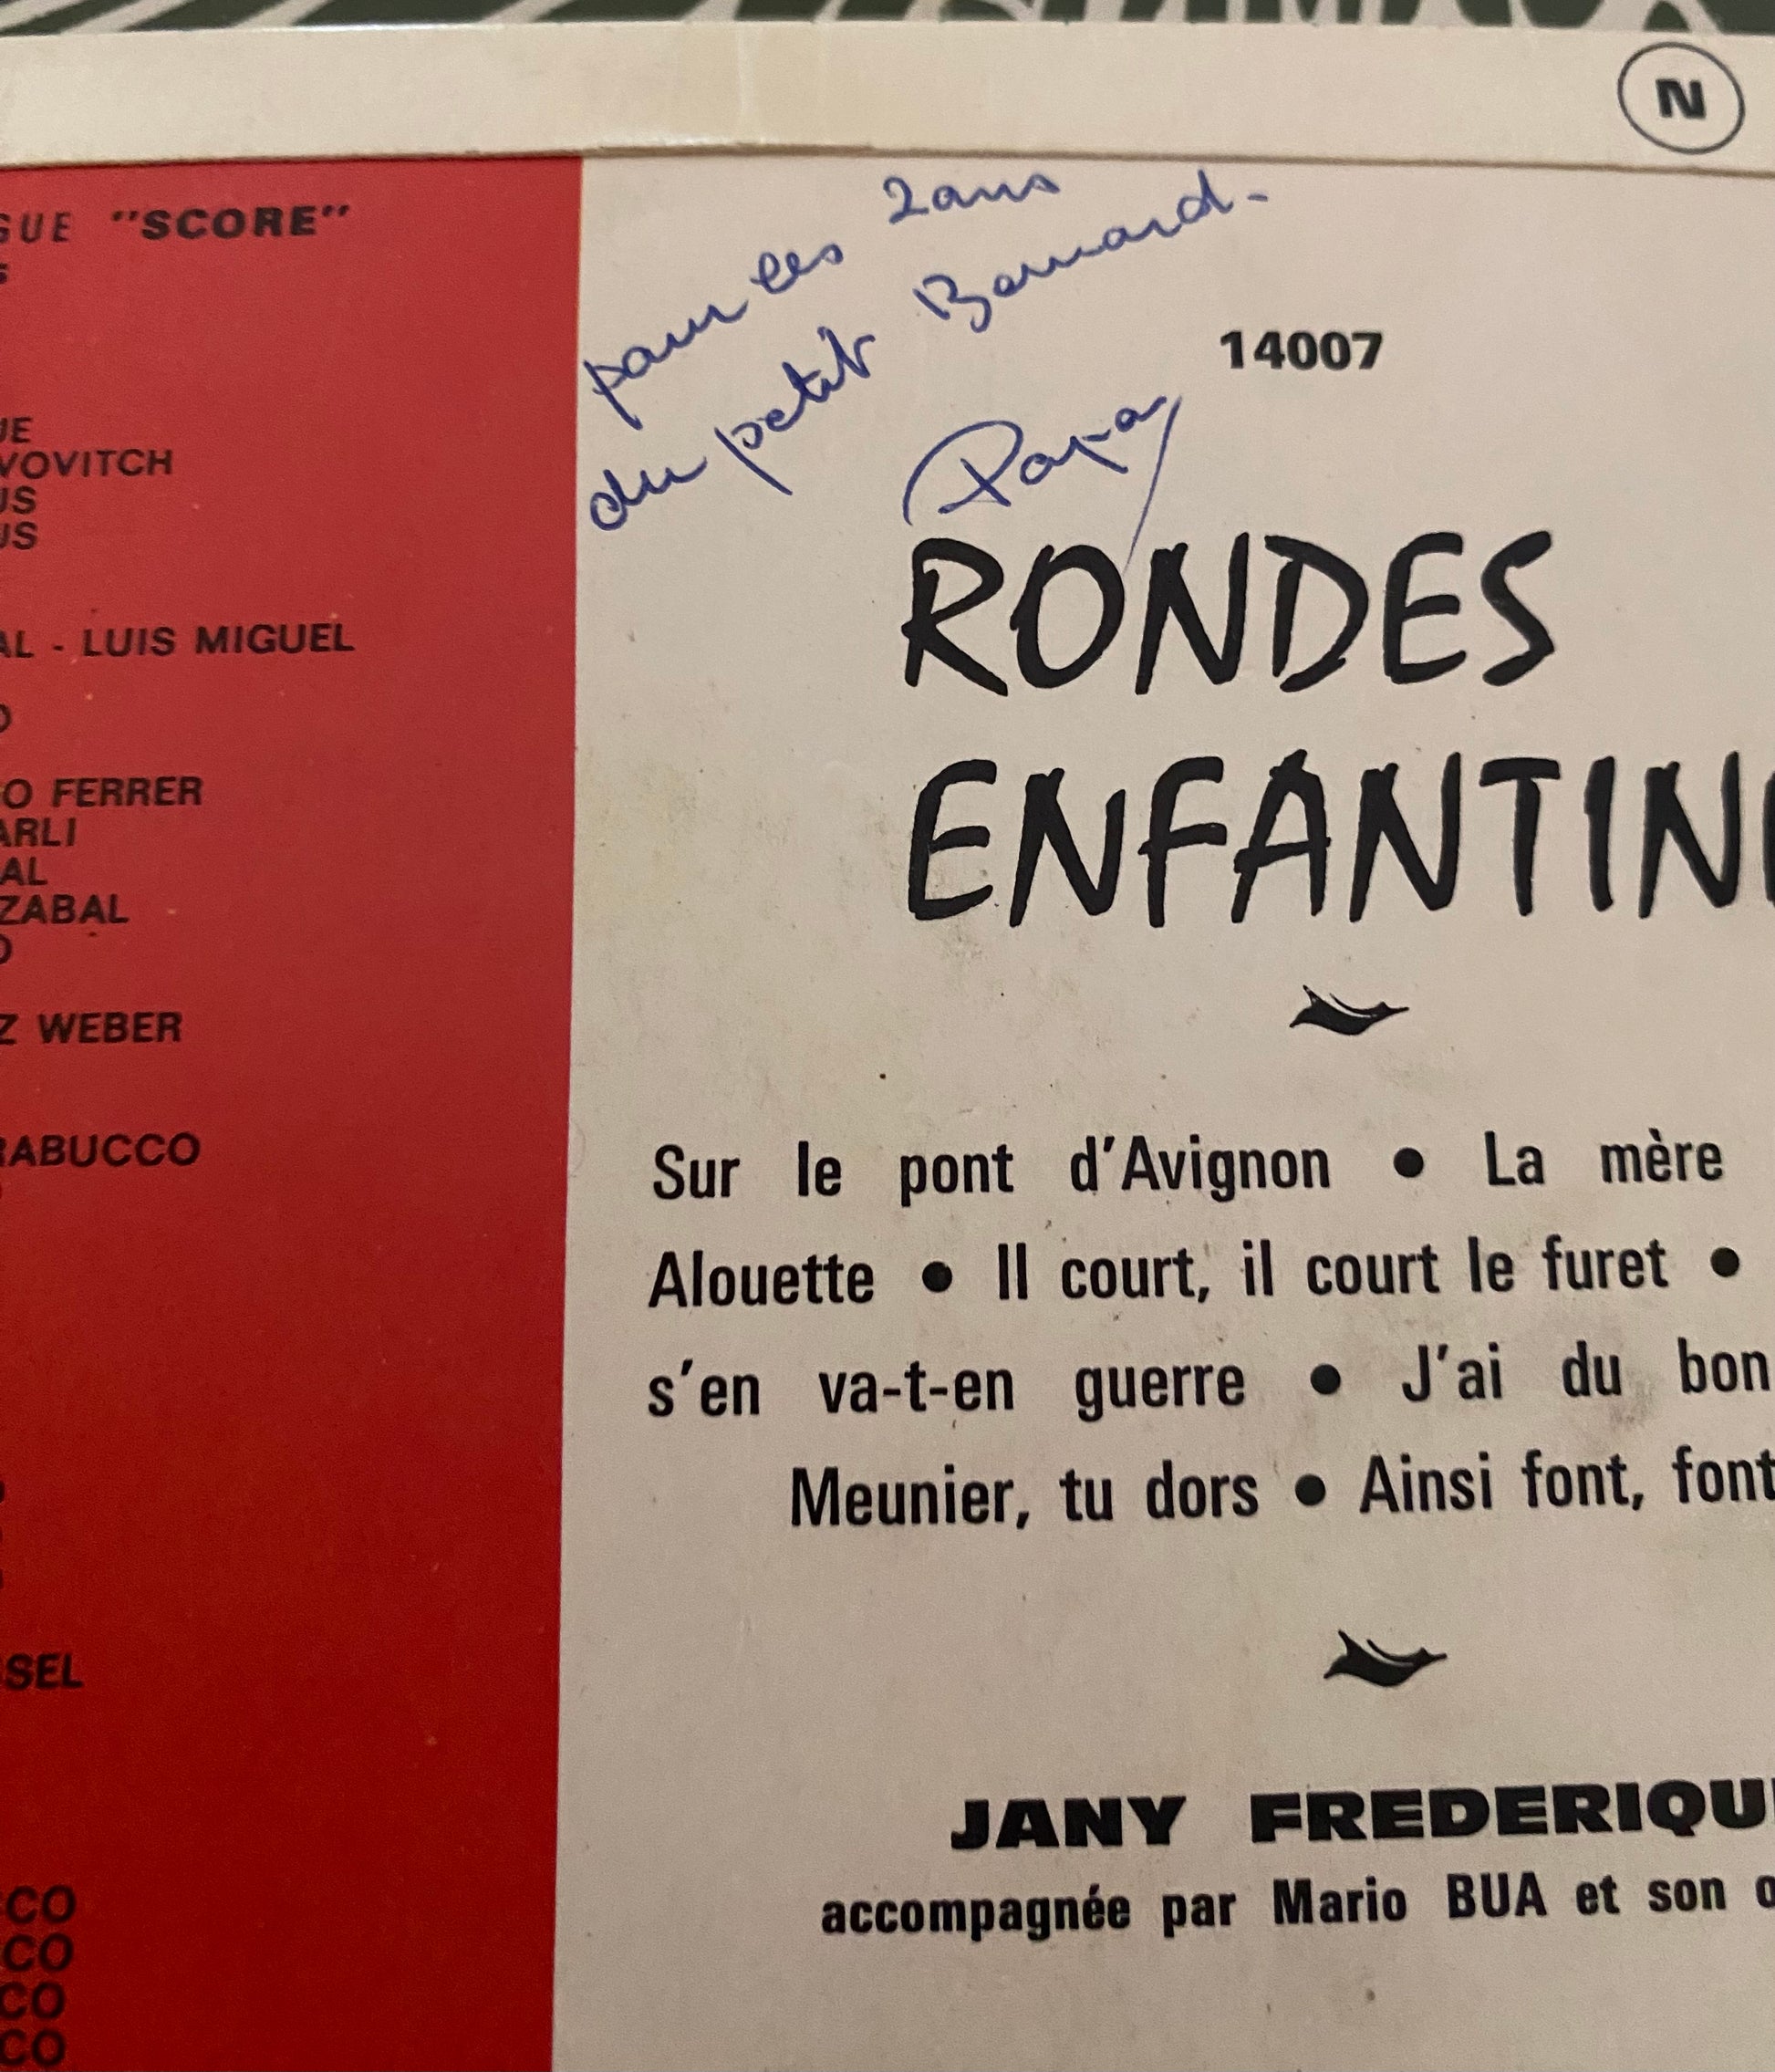 N
GUE "SCORE"
s
pour les 2 ans
du petit Bernard.
Papa
14007
UE
VOVITCH
US
US
AL - LUIS MIGUEL
O
O FERRER
ARLI
AL
ZABAL
O
Z WEBER
RABUCCO
SSEL
CCO
CCO
CCO
CCO
RONDES
ENFANTIN
Sur le pont d'Avignon • La mère
Alouette • Il court, il court le furet •
s'en va-t-en guerre • J'ai du bon
Meunier, tu dors • Ainsi font, font
JANY FREDERIQU
accompagnée par Mario BUA et son o